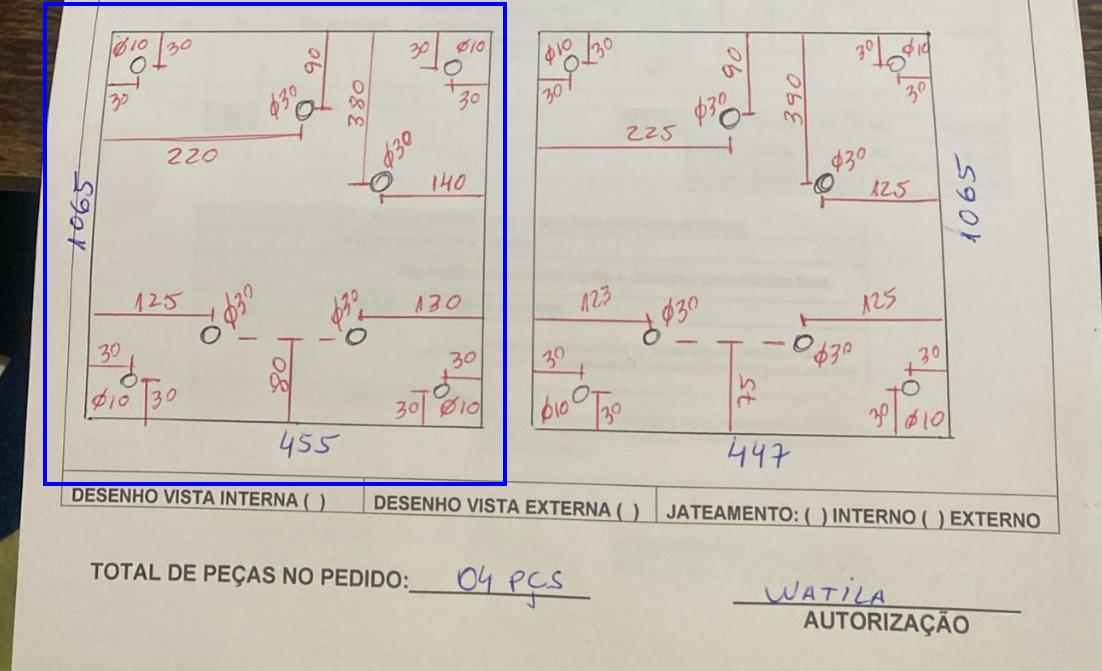 Ø10 30 90 380 30 Ø10
30 Ø30 30
220 Ø30 140
1065
125 Ø30 Ø30 130
30 80 30
Ø10 30 30 Ø10
455
Ø10 30 90 390 30 Ø10
30 Ø30 30
225 Ø30 125
1065
123 Ø30 125
30 75 Ø30 30
Ø10 30 30 Ø10
447
DESENHO VISTA INTERNA ( ) DESENHO VISTA EXTERNA ( ) JATEAMENTO: ( ) INTERNO ( ) EXTERNO
TOTAL DE PEÇAS NO PEDIDO: 04 PÇS
WATILA
AUTORIZAÇÃO